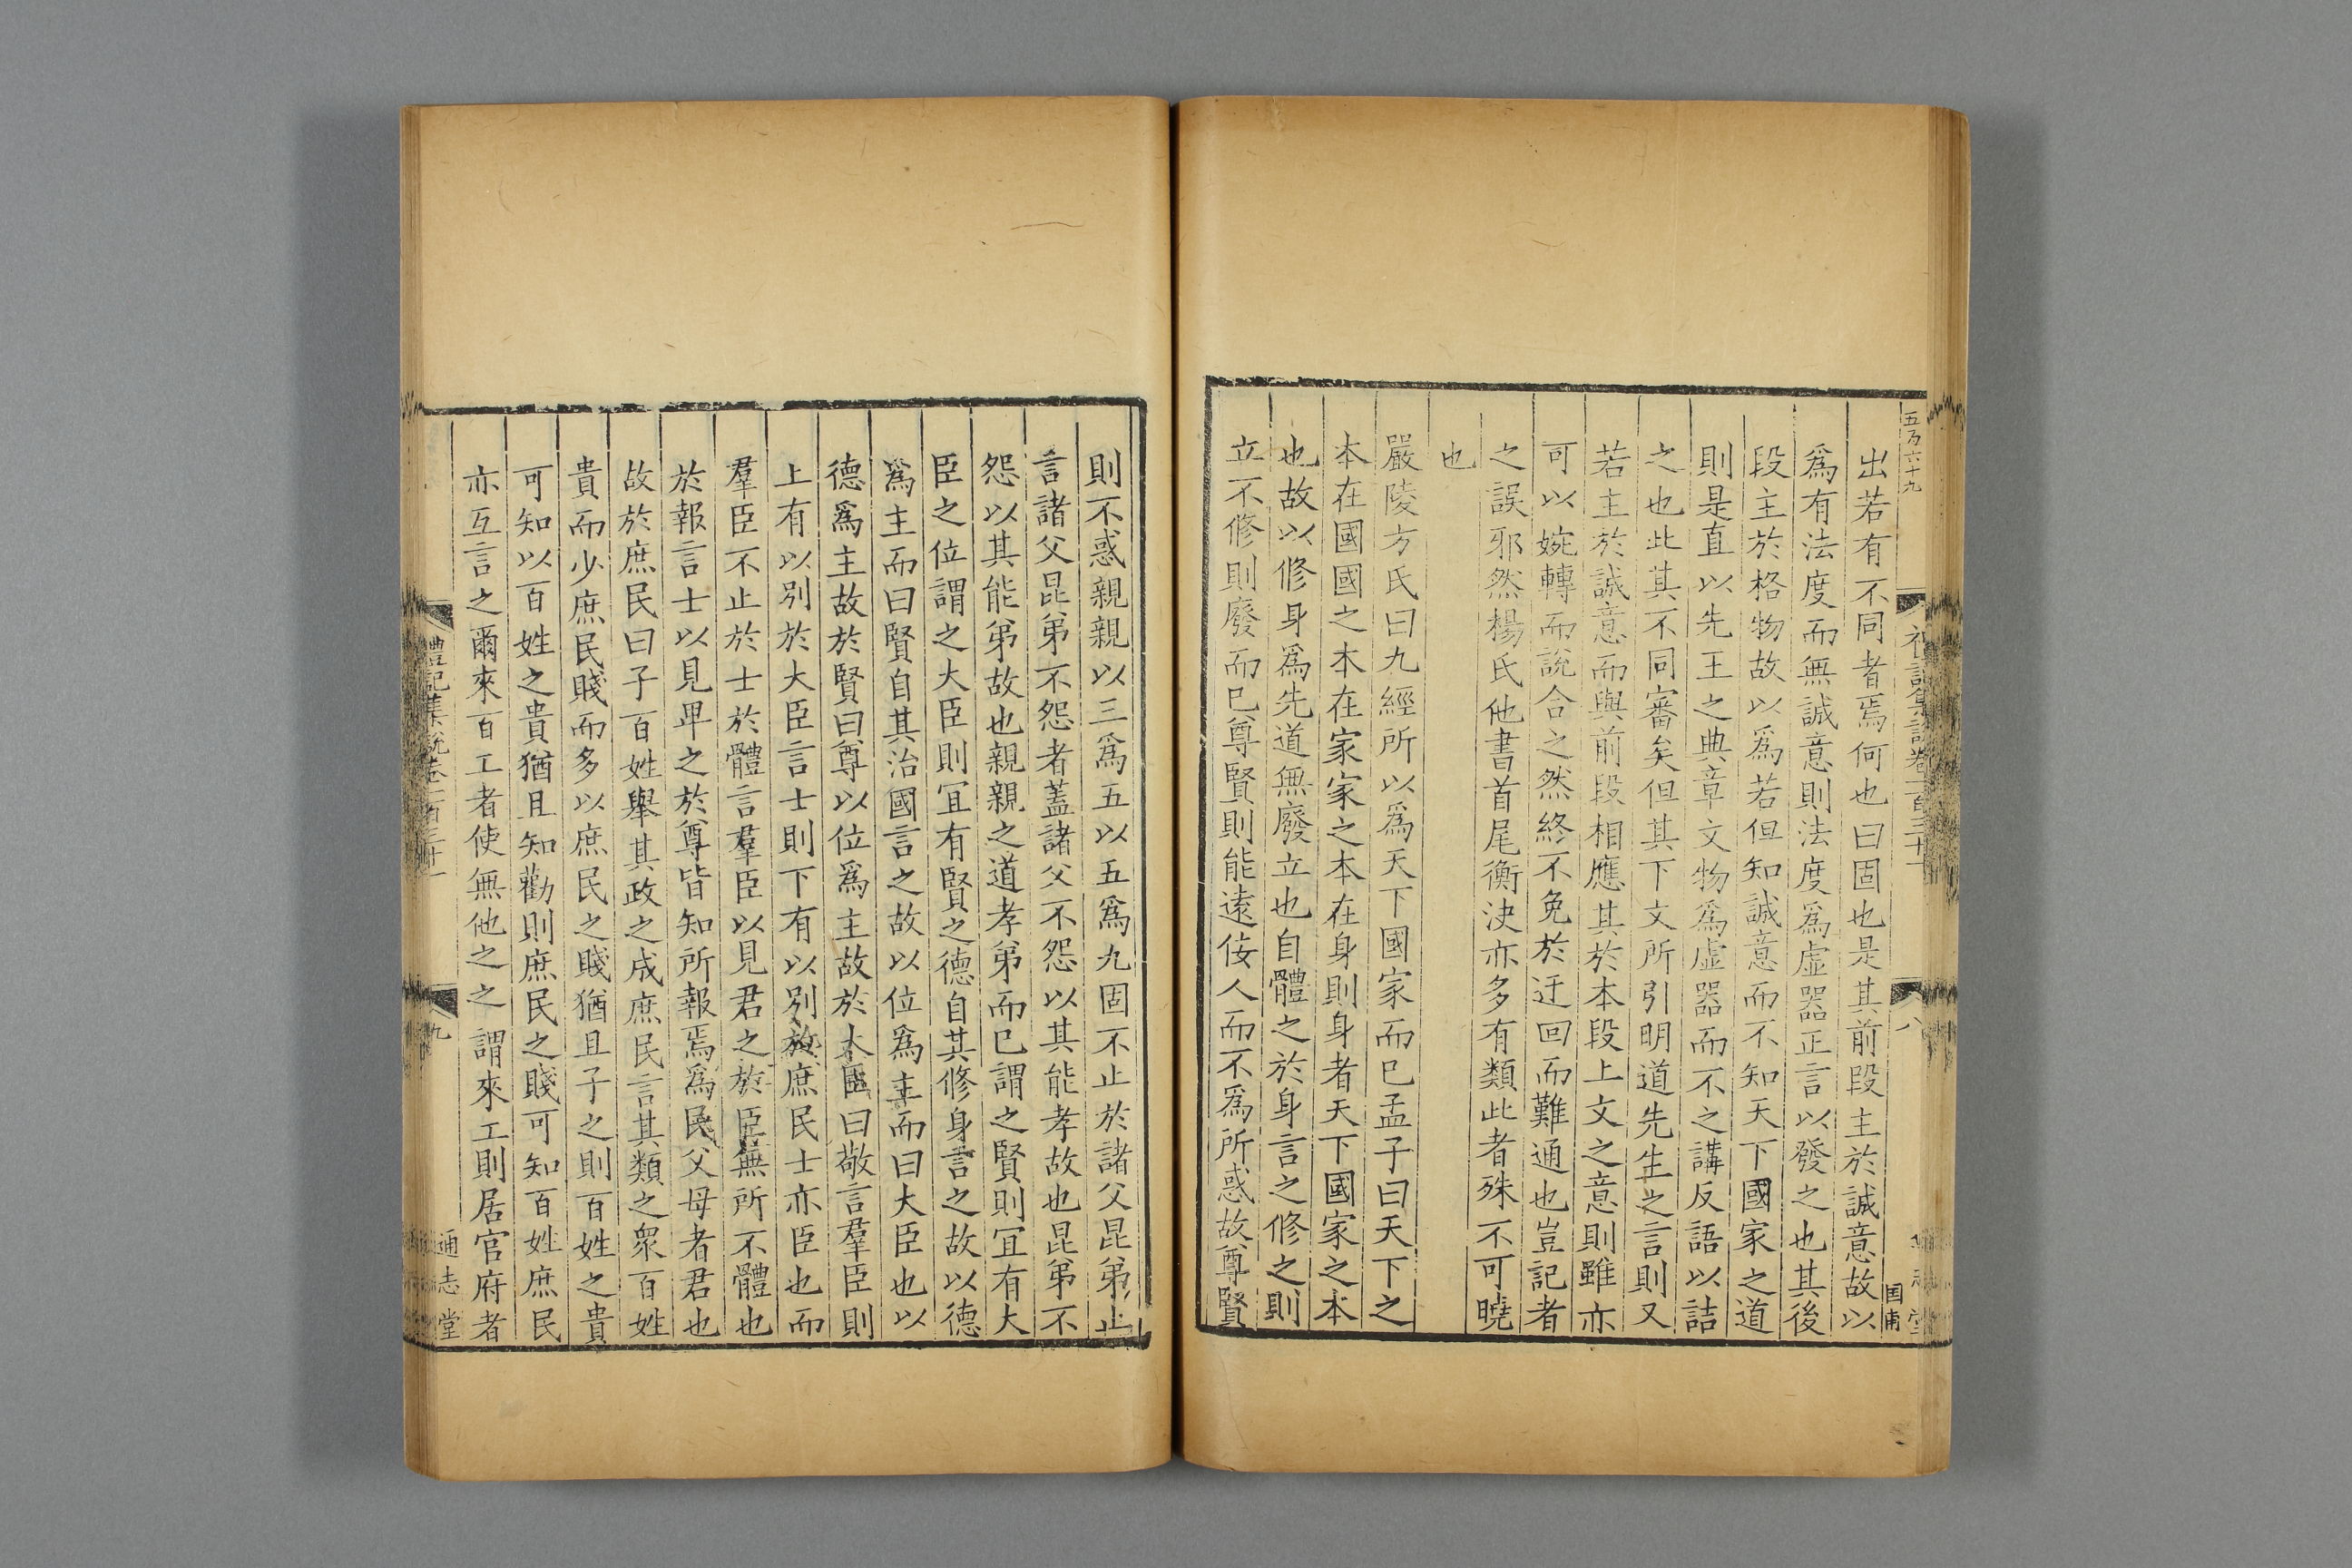 出若有不同者焉何也曰固也是其前段主於誠意故以
爲有法度而無誠意則法度爲虛器正言以發之也其後
段主於格物故以爲若但知誠意而不知天下國家之道
則是直以先王之典章文物爲虛器而不之講反語以詰
之也此其不同審矣但其下文所引明道先生之言則又
若主於誠意而與前段相應其於本段上文之意則雖亦
可以婉轉而說合之然終不免於迂回而難通也豈記者
之誤邪然楊氏他書首尾衡決亦多有類此者殊不可曉
也
嚴陵方氏曰九經所以爲天下國家而已孟子曰天下之
本在國國之本在家家之本在身則身者天下國家之本
也故以修身爲先道無廢立也自體之於身言之修之則
立不修則廢而已尊賢則能遠佞人而不爲所惑故尊賢
則不惑親親以三爲五以五爲九固不止於諸父昆弟止
言諸父昆弟不怨者蓋諸父不怨以其能孝故也昆弟不
怨以其能弟故也親親之道孝弟而已謂之賢則宜有大
臣之位謂之大臣則宜有賢之德自其修身言之故以德
爲主而曰賢自其治國言之故以位爲主而曰大臣也以
德爲主故於賢曰尊以位爲主故於大臣曰敬言羣臣則
上有以別於大臣言士則下有以別於庶民士亦臣也而
羣臣不止於士於體言羣臣以見君之於臣無所不體也
於報言士以見卑之於尊皆知所報焉爲民父母者君也
故於庶民曰子百姓舉其政之成庶民言其類之衆百姓
貴而少庶民賤而多以庶民之賤猶且子之則百姓之貴
可知以百姓之貴猶且知勸則庶民之賤可知百姓庶民
亦互言之爾來百工者使無他之之謂來工則居官府者
禮記集說卷一百三十一
九
通志堂